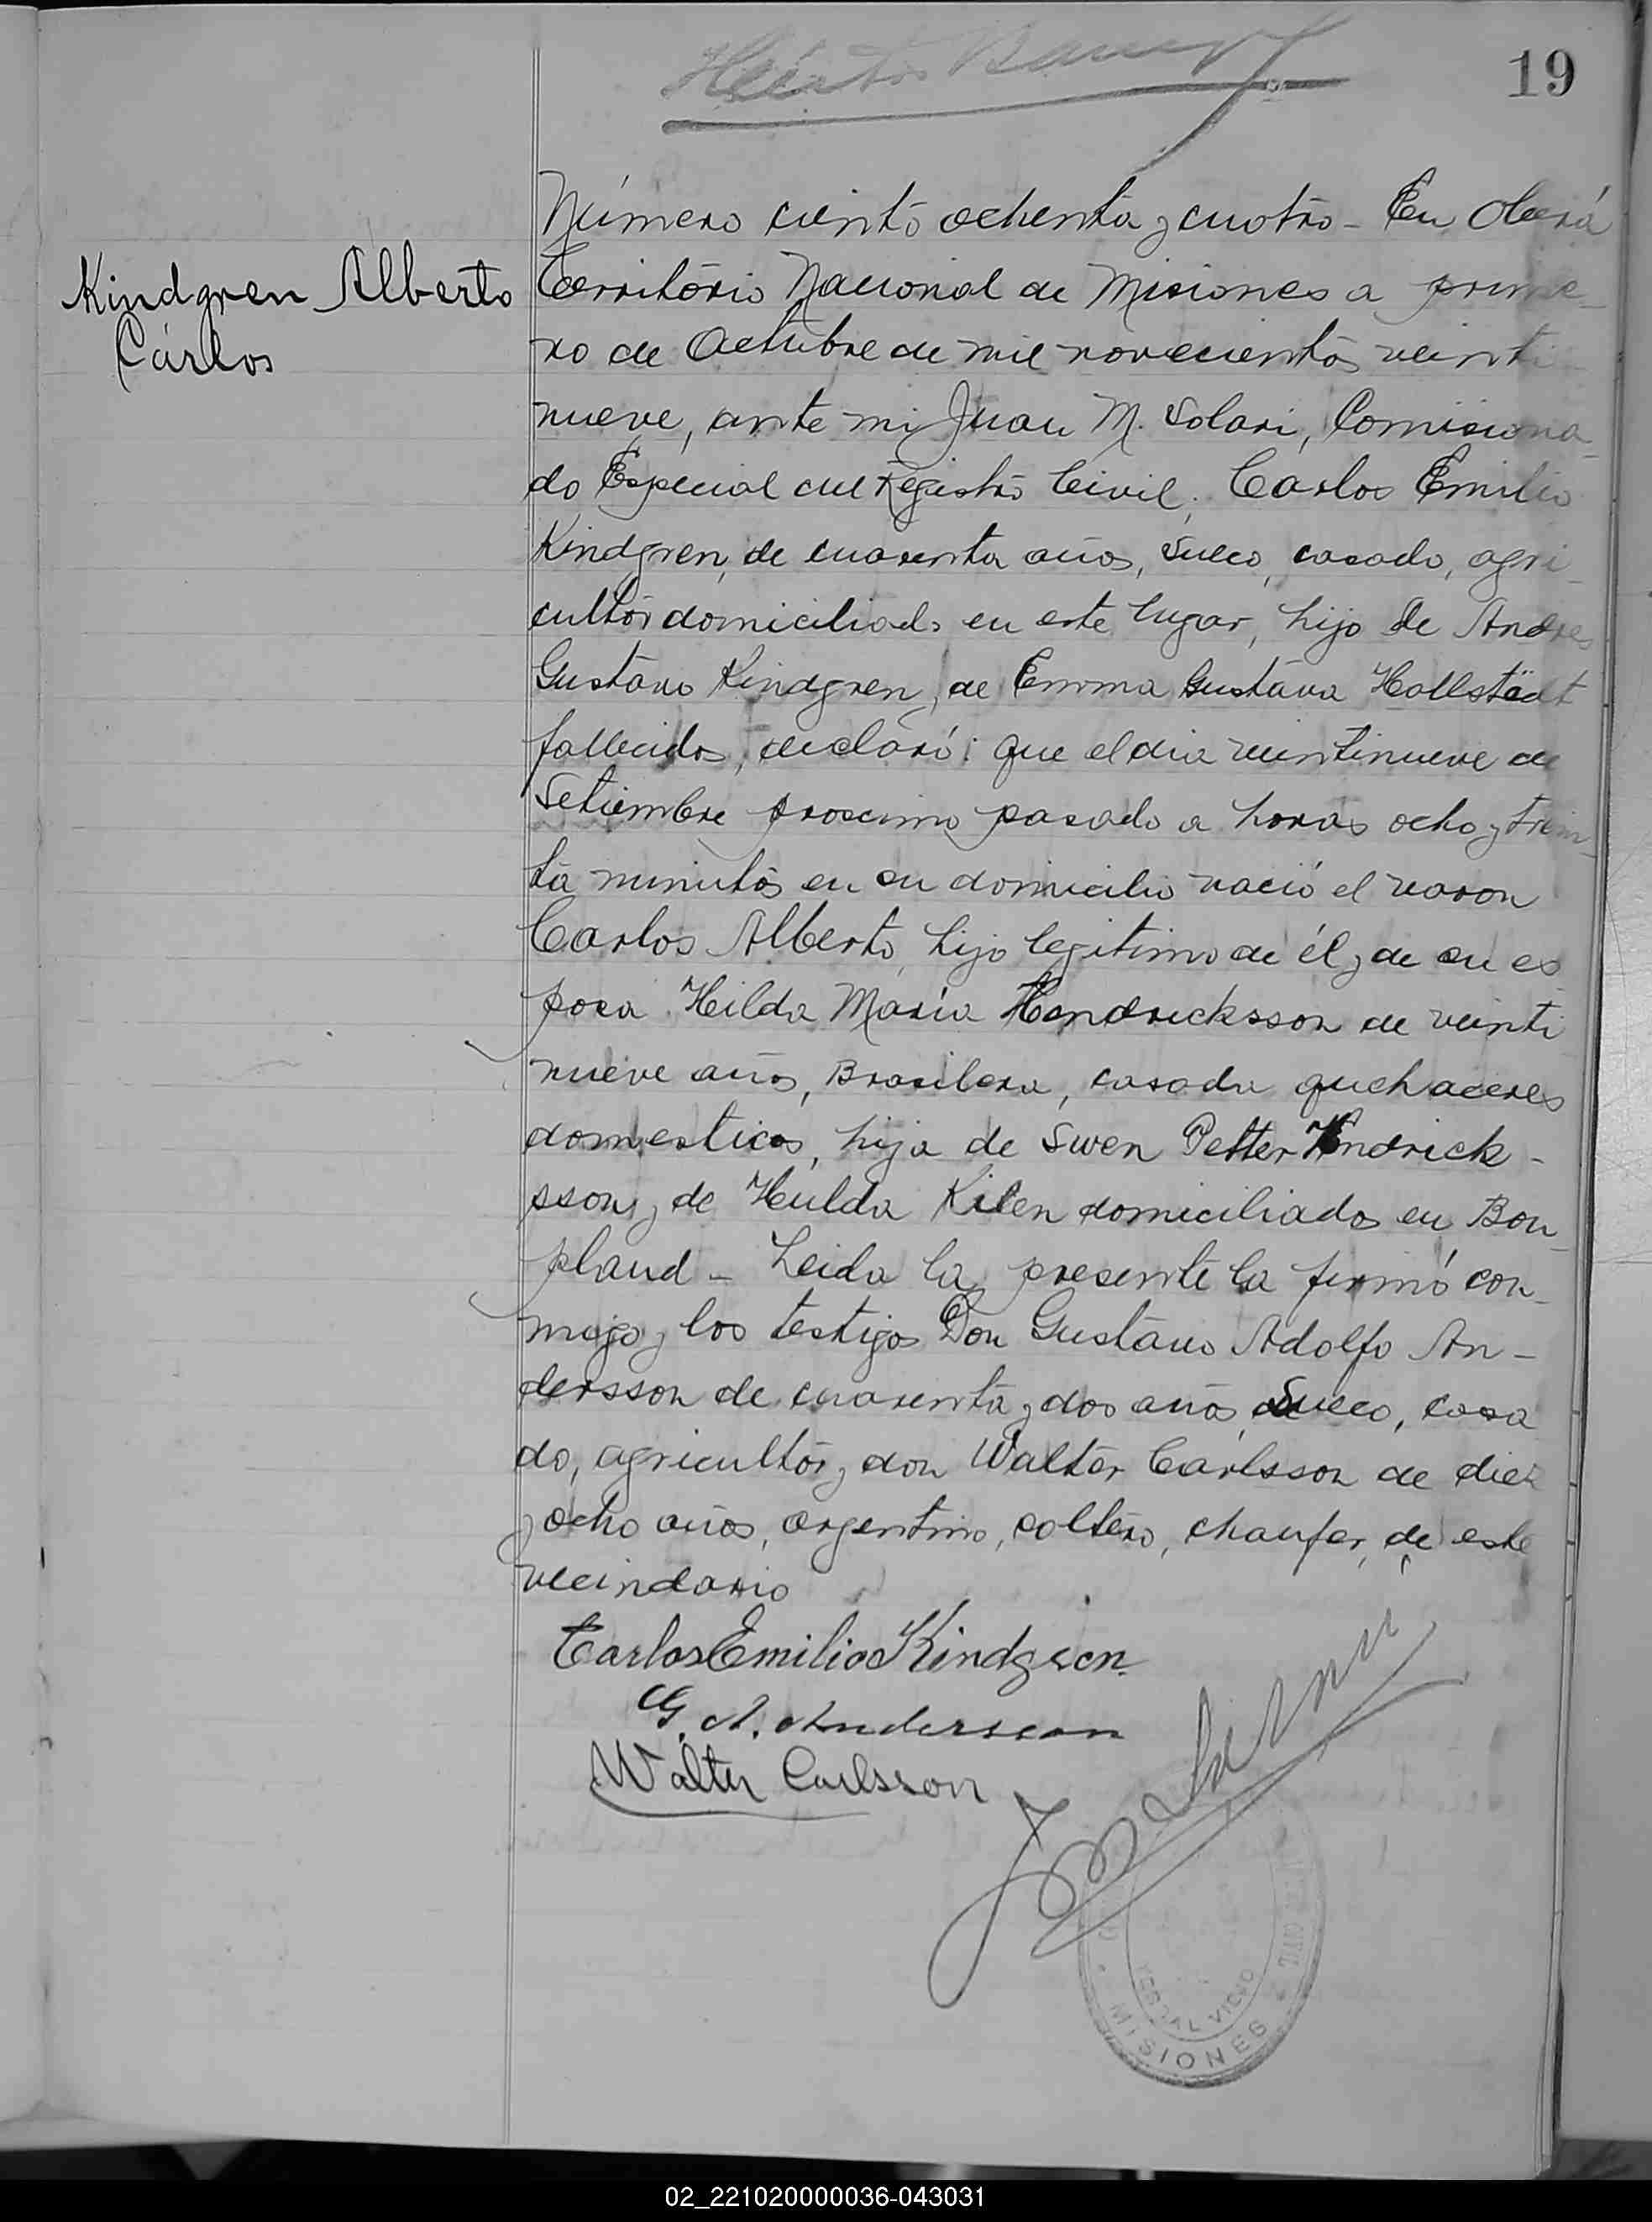 19
Número ciento ochenta y cuatro - En Oberá
Kindgren Alberto
Cárlos
Territorio Nacional de Misiones a prime-
ro de Octubre de mil novecientos veinti
nueve, ante mi Juan M. Solari, Comisiona-
do Especial del Registro Civil, Carlos Emilio
Kindgren, de cuarenta años, Sueco, casado, agri-
cultor domiciliado en este lugar, hijo de Andres
Gustavo Kindgren y de Emma Gustava Hallstädt
fallecidos, declaró: que el dia veintinueve de
Setiembre proscimo pasado a horas ocho y trein-
ta minutos en su domicilio nació el varon
Carlos Alberto, hijo legitimo de él y de su es
posa Hilda Maria Hendricksson de veinti
nueve años, Brasilera, casada quehaceres
domesticos, hija de Swen Petter Hndrick-
sson y de Hulda Kilen domiciliados en Bon-
pland - Leida la presente la firmó con-
migo y los testigos Don Gustavo Adolfo An-
dersson de cuarenta y dos años, Sueco, casa
do, agricultor y don Walter Carlsson de diez
y ocho años, argentino, soltero, chaufer, de este
vecindario
Carlos Emilio Kindgren
G. A. Andersson
Walter Carlsson
YERBAL VIEJO
MISIONES
02_221020000036-043031